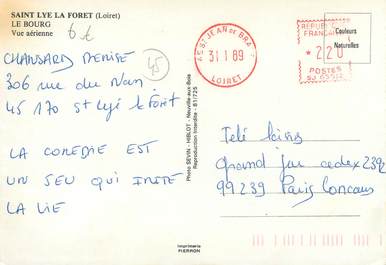 SAINT LYE LA FORET (Loiret)
LE BOURG
Vue aérienne
6 €
CHANSARD DENISE
45
306 rue du Nan
45 170 St Lyé le Foret
LA COMEDIE EST
UN JEU QUI IMITE
LA VIE
Photo SEVIN - HIBLOT - Neuville-aux-Bois
Reproduction Interdite - 61/725
ST JEAN DE BRA
31 1 89
LOIRET
REPUBLIQUE
FRANCAISE
* 2,20
POSTES
Couleurs
Naturelles
Télé Loisirs
Grand jeu cedex 2392
99239 Paris Concours
Imprimerie
PIERRON